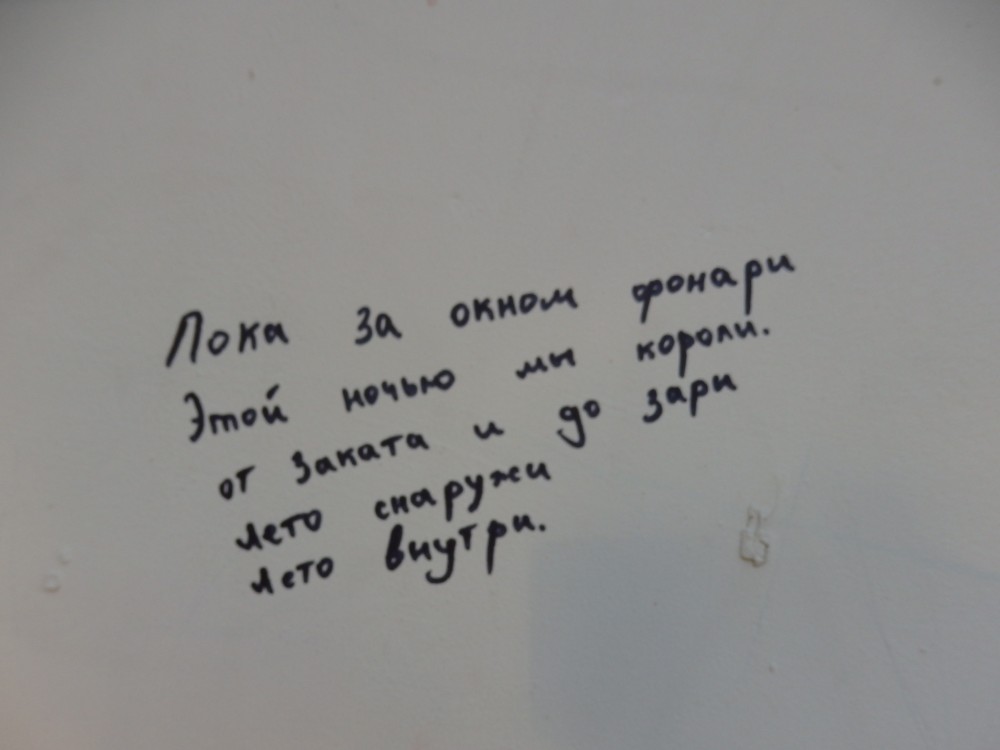 Пока за окном фонари
Этой ночью мы короли.
от заката и до зари
лето снаружи
лето внутри.